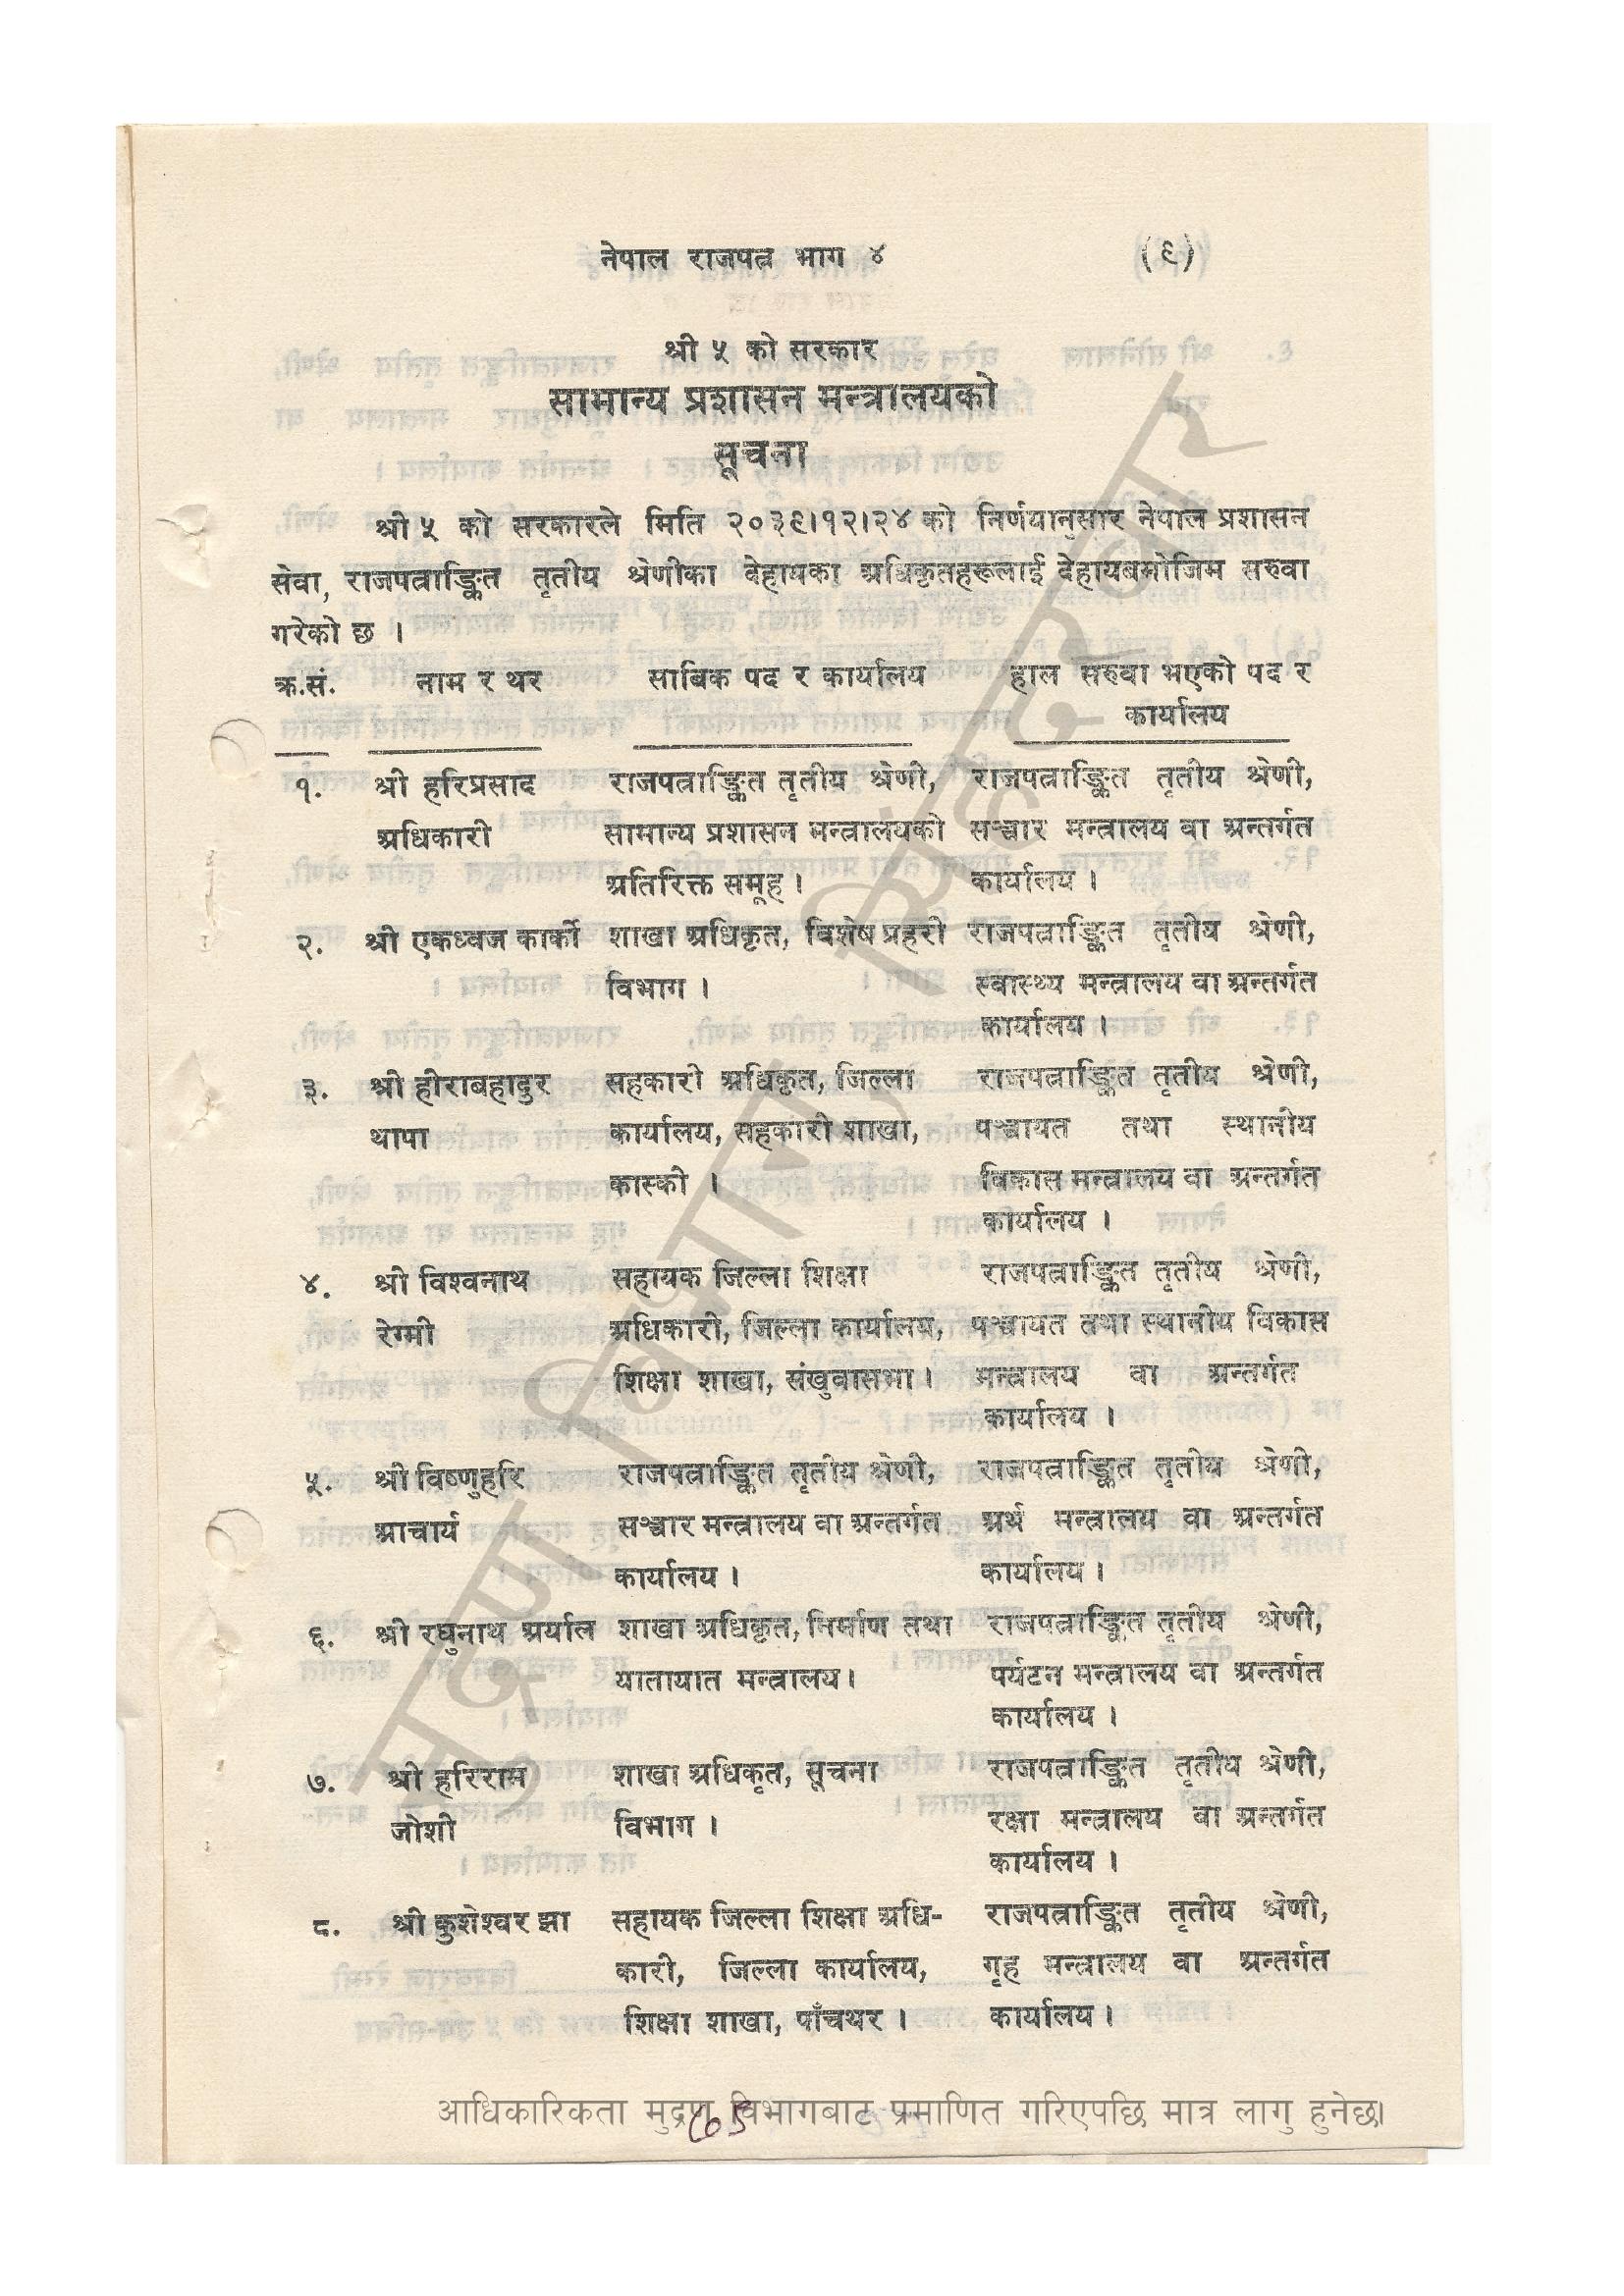 नेपाल राजपत्र भाग ४ (९)
श्री ५ को सरकार
सामान्य प्रशासन मन्त्रालयको
सूचना
श्री ५ को सरकारले मिति २०३९।१२।२४ को निर्णयानुसार नेपाल प्रशासन
सेवा, राजपत्राङ्कित तृतीय श्रेणीका देहायका अधिकृतहरूलाई देहायबमोजिम सरुवा
गरेको छ ।
क्र.सं. नाम र थर साबिक पद र कार्यालय हाल सरुवा भएको पद र
कार्यालय
१. श्री हरिप्रसाद राजपत्राङ्कित तृतीय श्रेणी, राजपत्राङ्कित तृतीय श्रेणी,
अधिकारी सामान्य प्रशासन मन्त्रालयको सञ्चार मन्त्रालय वा अन्तर्गत
अतिरिक्त समूह । कार्यालय ।
२. श्री एकध्वज कार्की शाखा अधिकृत, विशेष प्रहरी राजपत्राङ्कित तृतीय श्रेणी,
विभाग । स्वास्थ्य मन्त्रालय वा अन्तर्गत
कार्यालय ।
३. श्री हीराबहादुर सहकारी अधिकृत, जिल्ला राजपत्राङ्कित तृतीय श्रेणी,
थापा कार्यालय, सहकारी शाखा, पञ्चायत तथा स्थानीय
कास्की । विकास मन्त्रालय वा अन्तर्गत
कार्यालय ।
४. श्री विश्वनाथ सहायक जिल्ला शिक्षा राजपत्राङ्कित तृतीय श्रेणी,
रेग्मी अधिकारी, जिल्ला कार्यालय, पञ्चायत तथा स्थानीय विकास
शिक्षा शाखा, संखुवासभा । मन्त्रालय वा अन्तर्गत
कार्यालय ।
५. श्री विष्णुहरि राजपत्राङ्कित तृतीय श्रेणी, राजपत्राङ्कित तृतीय श्रेणी,
आचार्य सञ्चार मन्त्रालय वा अन्तर्गत अर्थ मन्त्रालय वा अन्तर्गत
कार्यालय । कार्यालय ।
६. श्री रघुनाथ अर्याल शाखा अधिकृत, निर्माण तथा राजपत्राङ्कित तृतीय श्रेणी,
यातायात मन्त्रालय। पर्यटन मन्त्रालय वा अन्तर्गत
कार्यालय ।
७. श्री हरिराम शाखा अधिकृत, सूचना राजपत्राङ्कित तृतीय श्रेणी,
जोशी विभाग । रक्षा मन्त्रालय वा अन्तर्गत
कार्यालय ।
८. श्री कुशेश्वर झा सहायक जिल्ला शिक्षा अधि- राजपत्राङ्कित तृतीय श्रेणी,
कारी, जिल्ला कार्यालय, गृह मन्त्रालय वा अन्तर्गत
शिक्षा शाखा, पाँचथर । कार्यालय ।
मुद्रण विभाग, सिंहदरबार
आधिकारिकता मुद्रण विभागबाट प्रमाणित गरिएपछि मात्र लागु हुनेछ।